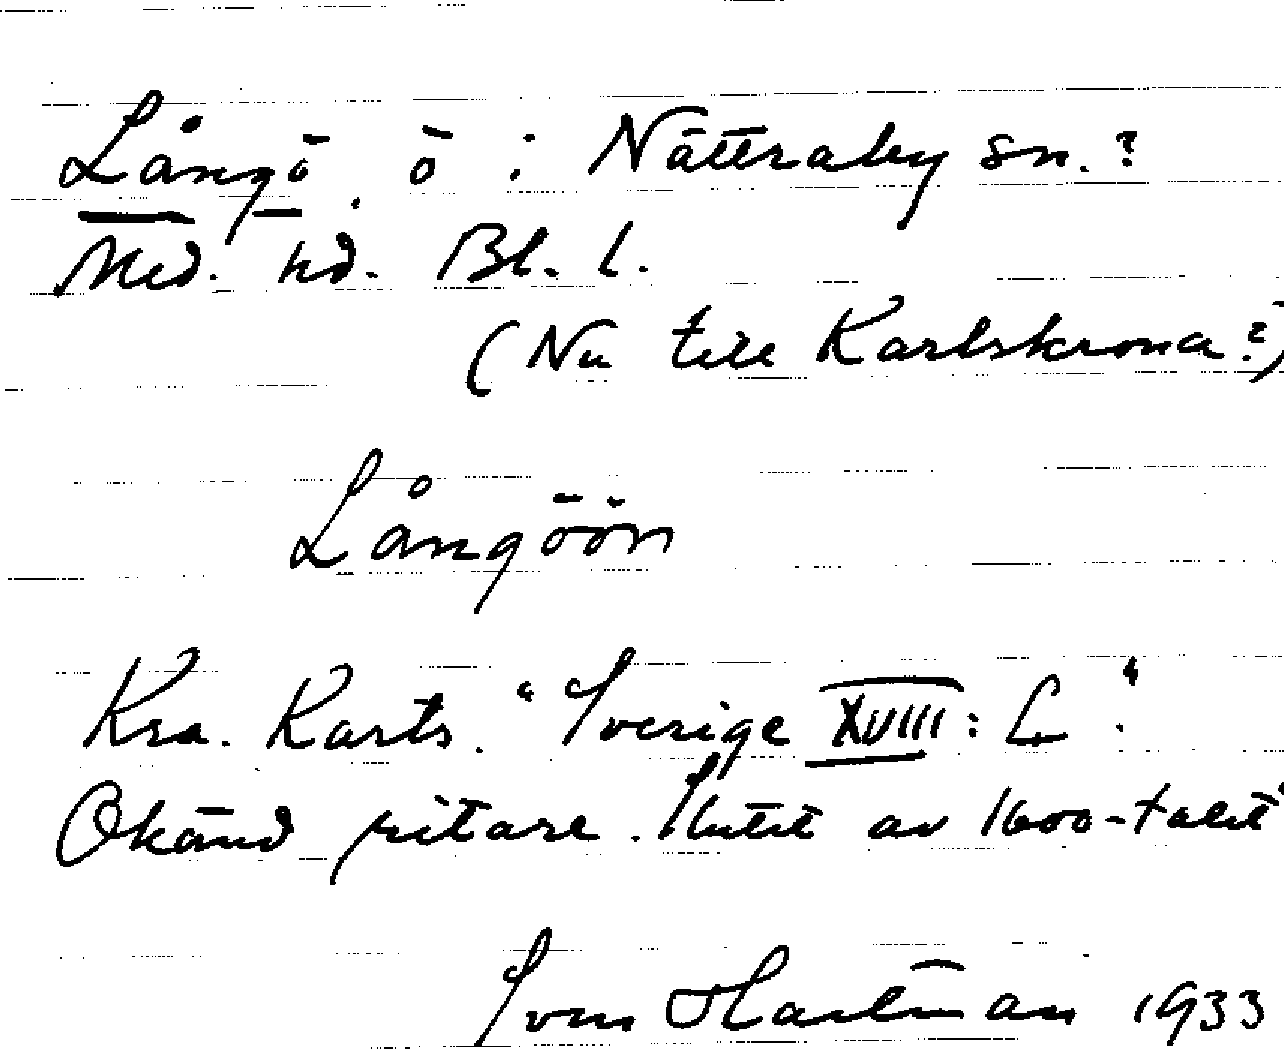 Långö, ö i Nättraby sn.?
Med. hd. Bl. l.
(Nu till Karlskrona?)
Långöön
Kra. Karts. "Sverige XVIII: L".
Okänd ritare. Slutet av 1600-talet
Sven Hartman 1933